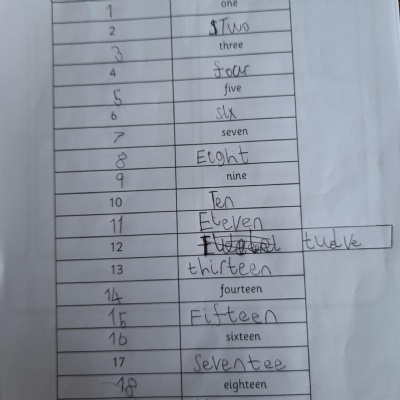 1 one
2 Two
3 three
4 four
5 five
6 six
7 seven
8 Eight
9 nine
10 Ten
11 Eleven
12 twelve
13 thirteen
14 fourteen
15 Fifteen
16 sixteen
17 Seventee
18 eighteen